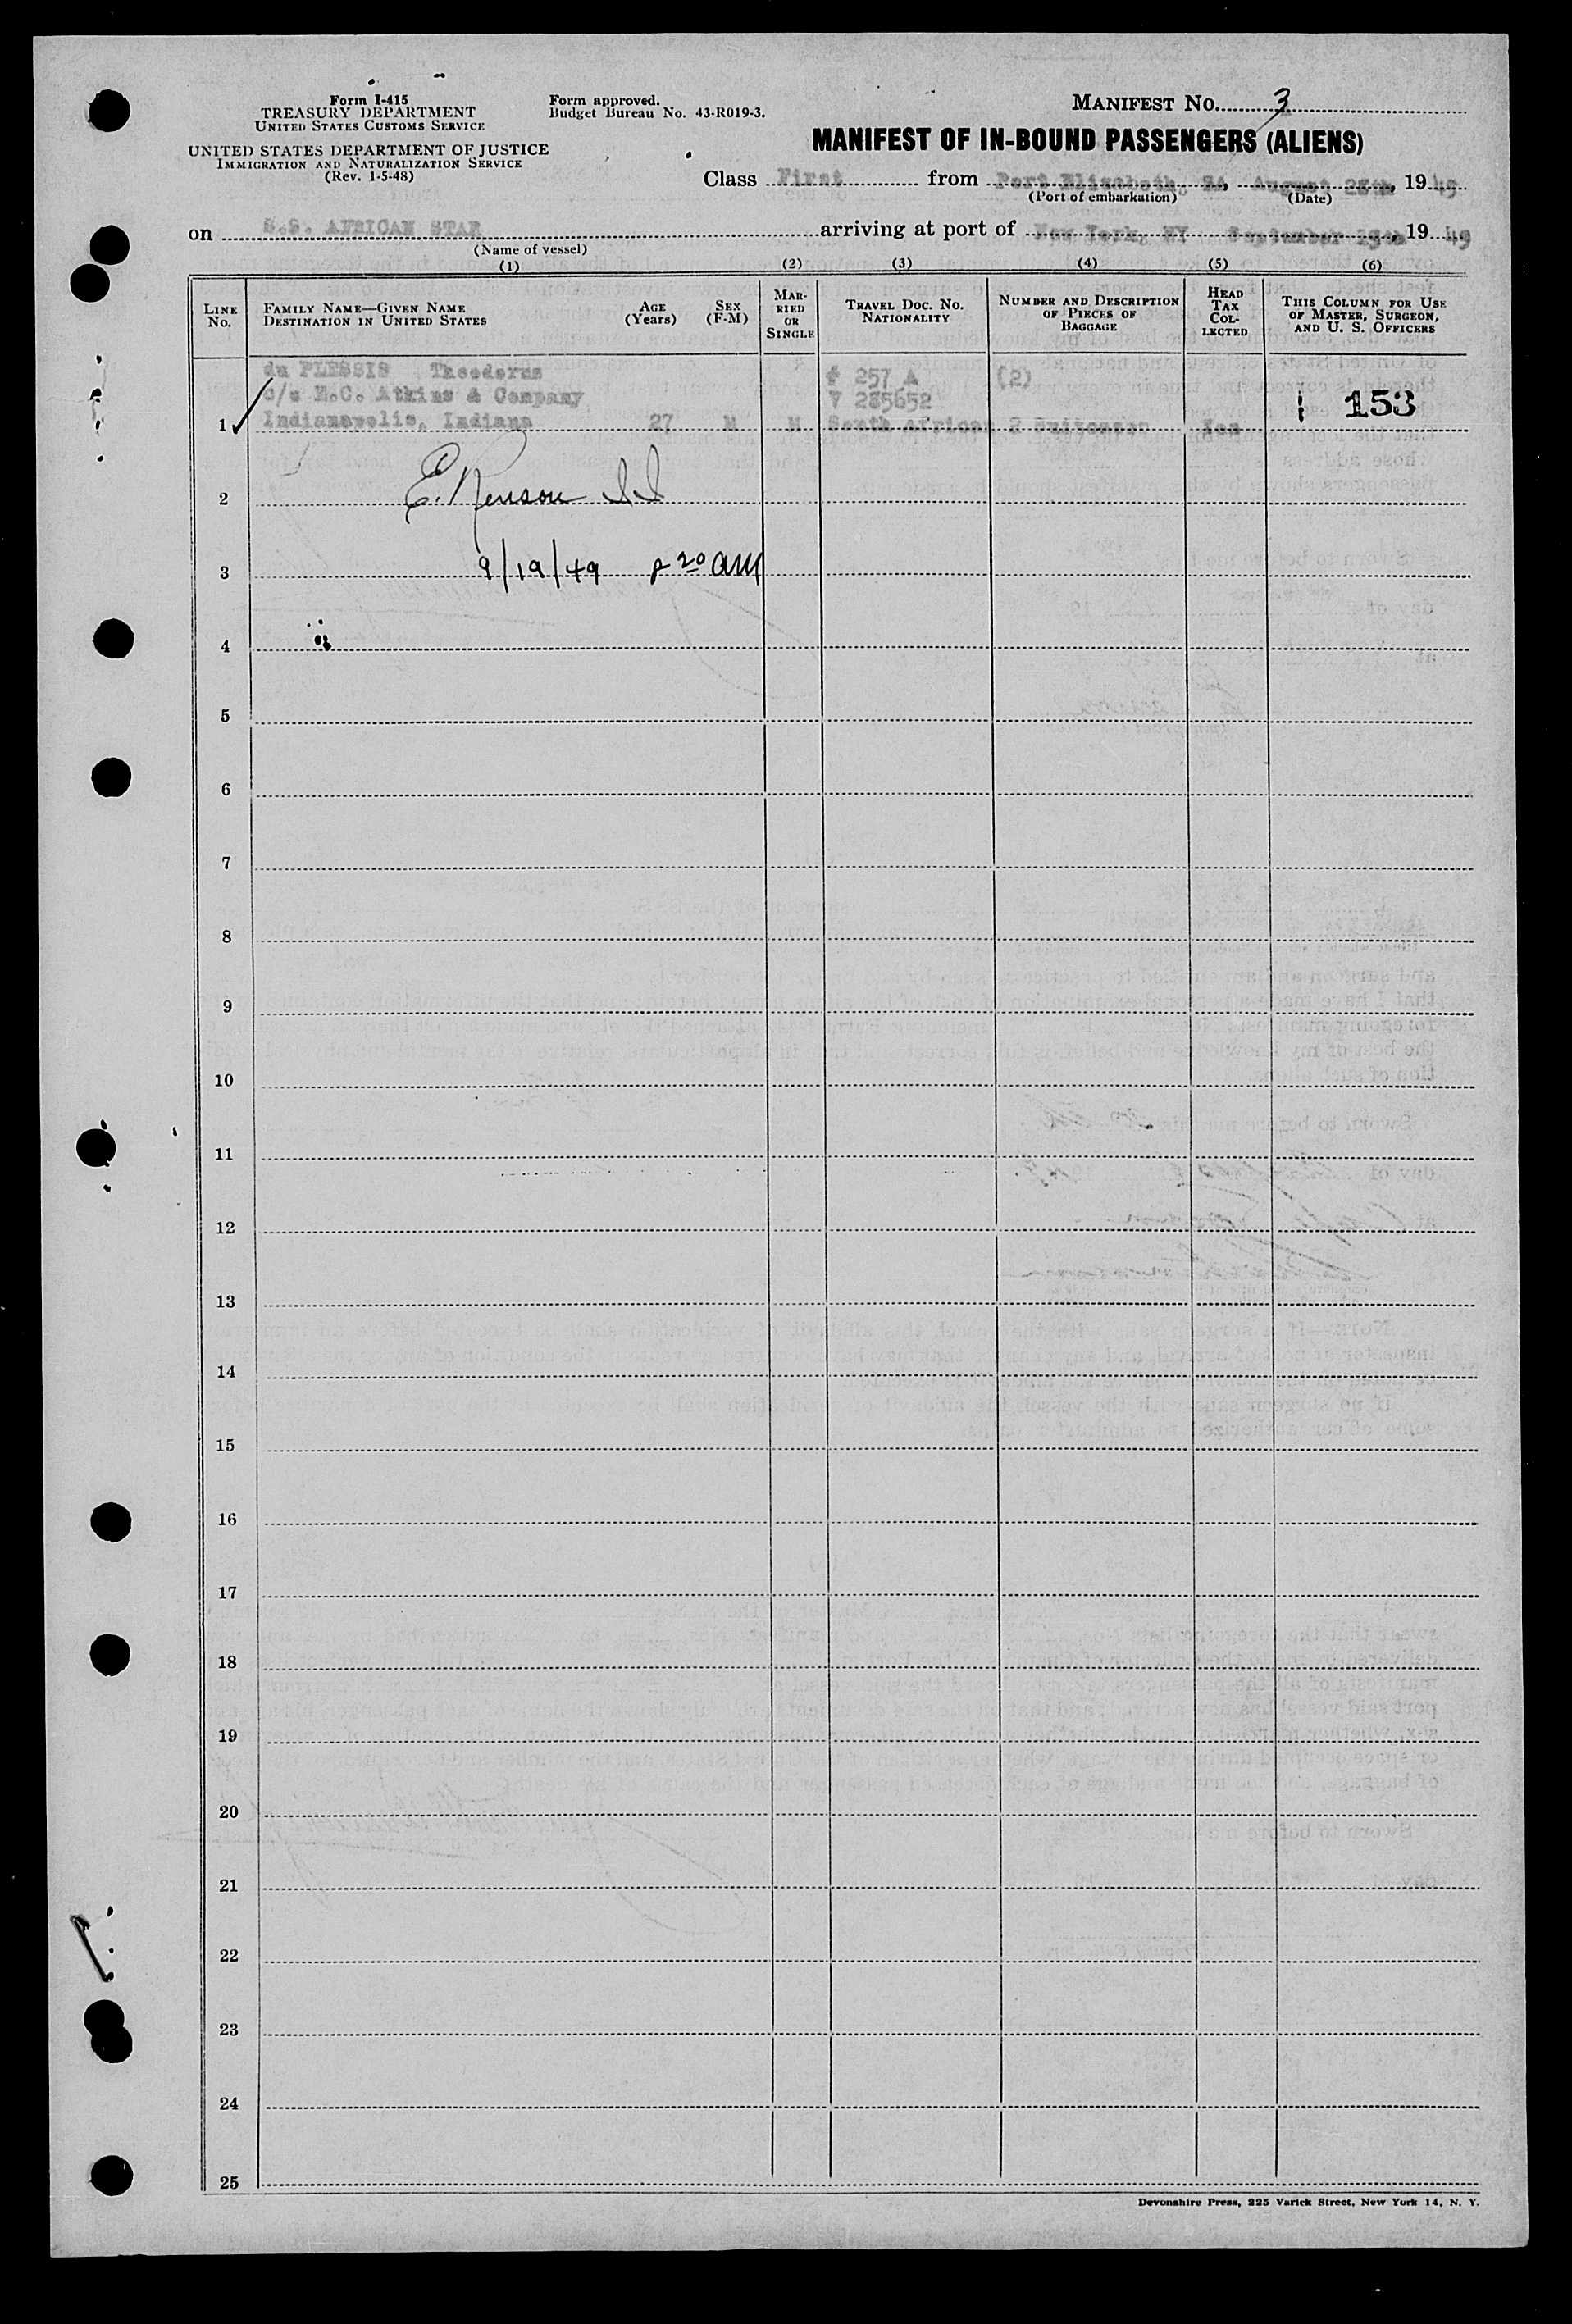 Form I-415
TREASURY DEPARTMENT
UNITED STATES CUSTOMS SERVICE
UNITED STATES DEPARTMENT OF JUSTICE
IMMIGRATION AND NATURALIZATION SERVICE
(Rev. 1-5-48)
Form approved.
Budget Bureau No. 43-R019-3.
MANIFEST No. 3
MANIFEST OF IN-BOUND PASSENGERS (ALIENS)
Class First from Port Elizabeth, SA, August 25th, 19 49
(Port of embarkation) (Date)
on S.S. AFRICAN STAR arriving at port of New York, NY September 19th, 19 49
(Name of vessel)
(1) (2) (3) (4) (5) (6)
LINE No.
FAMILY NAME—GIVEN NAME
DESTINATION IN UNITED STATES
AGE (Years)
SEX (F-M)
MARRIED OR SINGLE
TRAVEL DOC. NO.
NATIONALITY
NUMBER AND DESCRIPTION OF PIECES OF BAGGAGE
HEAD TAX COLLECTED
THIS COLUMN FOR USE OF MASTER, SURGEON, AND U. S. OFFICERS
du PLESSIS Theodorus # 257 A (2)
c/o E.C. Atkins & Company V 285652 153
1 Indianapolis, Indiana 27 M M South African 2 Suitcases Yes
2 E.
3 9/19/49 20 AM
4
5
6
7
8
9
10
11
12
13
14
15
16
17
18
19
20
21
22
23
24
25
Devonshire Press, 225 Varick Street, New York 14, N. Y.